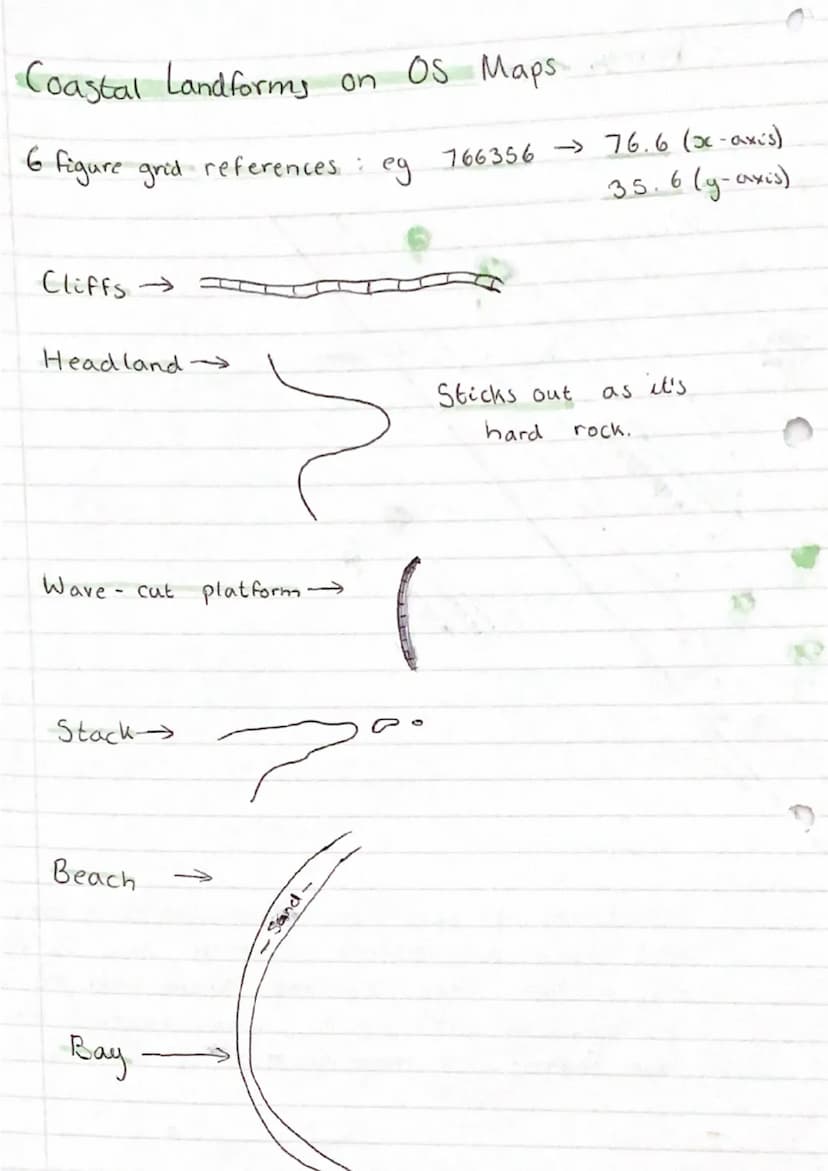 Coastal Landforms on OS Maps
6 figure grid references : eg 766356 → 76.6 (x-axis)
35.6 (y-axis)
Cliffs →
Headland →
Sticks out as it's
hard rock.
Wave-cut platform →
Stack →
Beach →
- Sand -
Bay →